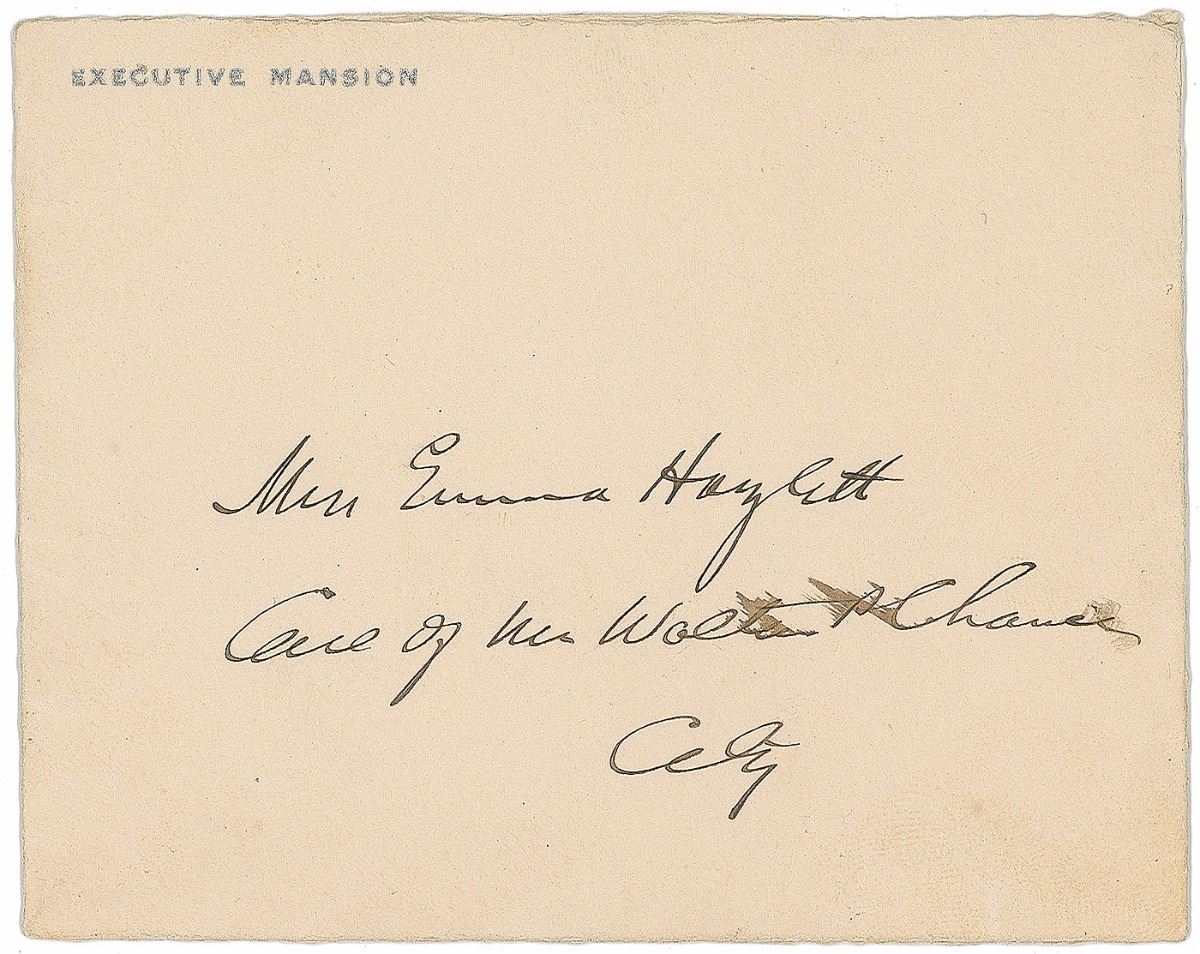 EXECUTIVE MANSION
Miss Emma Hazlett
Care of Mr Walter
City